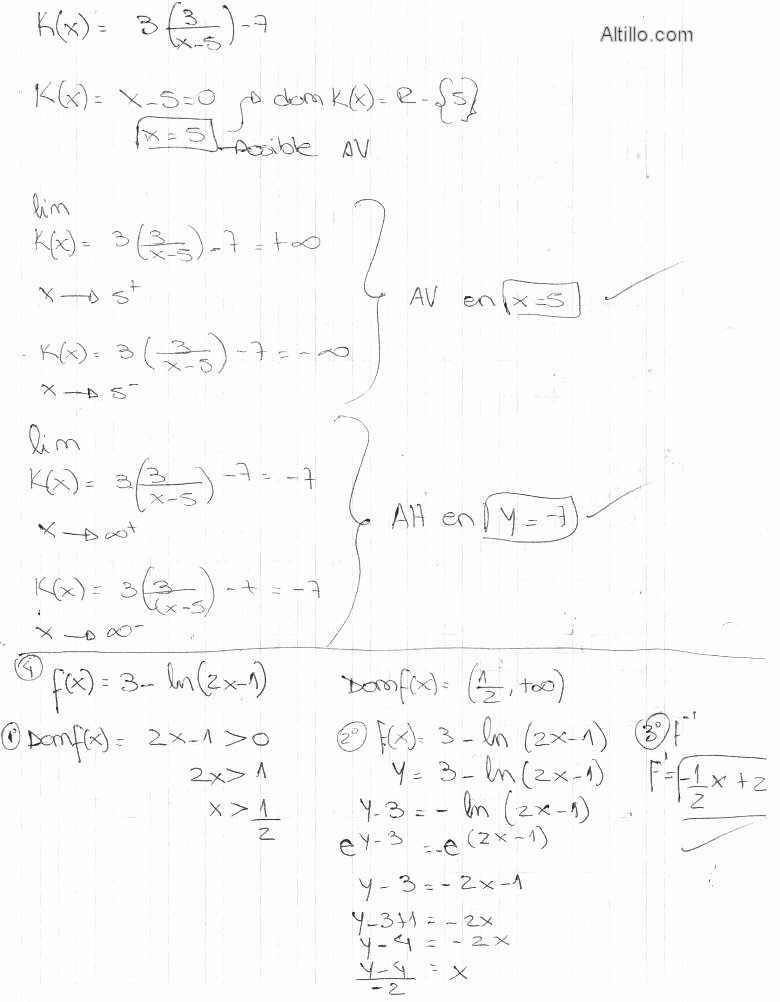 Altillo.com
K(x) = 3(3/(x-5)) -7
K(x) = x-5=0 → dom K(x) = R - {5}
x = 5 Posible AV
lim
K(x) = 3(3/(x-5)) - 7 = +∞
x → 5⁺
AV en x = 5 ✓
K(x) = 3(3/(x-5)) - 7 = -∞
x → 5⁻
lim
K(x) = 3(3/(x-5)) - 7 = -7
x → ∞⁺
AH en y = -7 ✓
K(x) = 3(3/(x-5)) - 7 = -7
x → ∞⁻
④ f(x) = 3 - ln(2x-1) Dom f(x) = (1/2, +∞)
①° Dom f(x) = 2x-1 > 0
2x > 1
x > 1/2
2° F(x) = 3 - ln (2x-1)
y = 3 - ln(2x-1)
y-3 = - ln (2x-1)
e^(y-3) = -e^(2x-1)
y - 3 = - 2x-1
y-3+1 = -2x
y-4 = -2x
(y-4)/-2 = x
3° F⁻¹
F¹ = -1/2 x + 2
✓